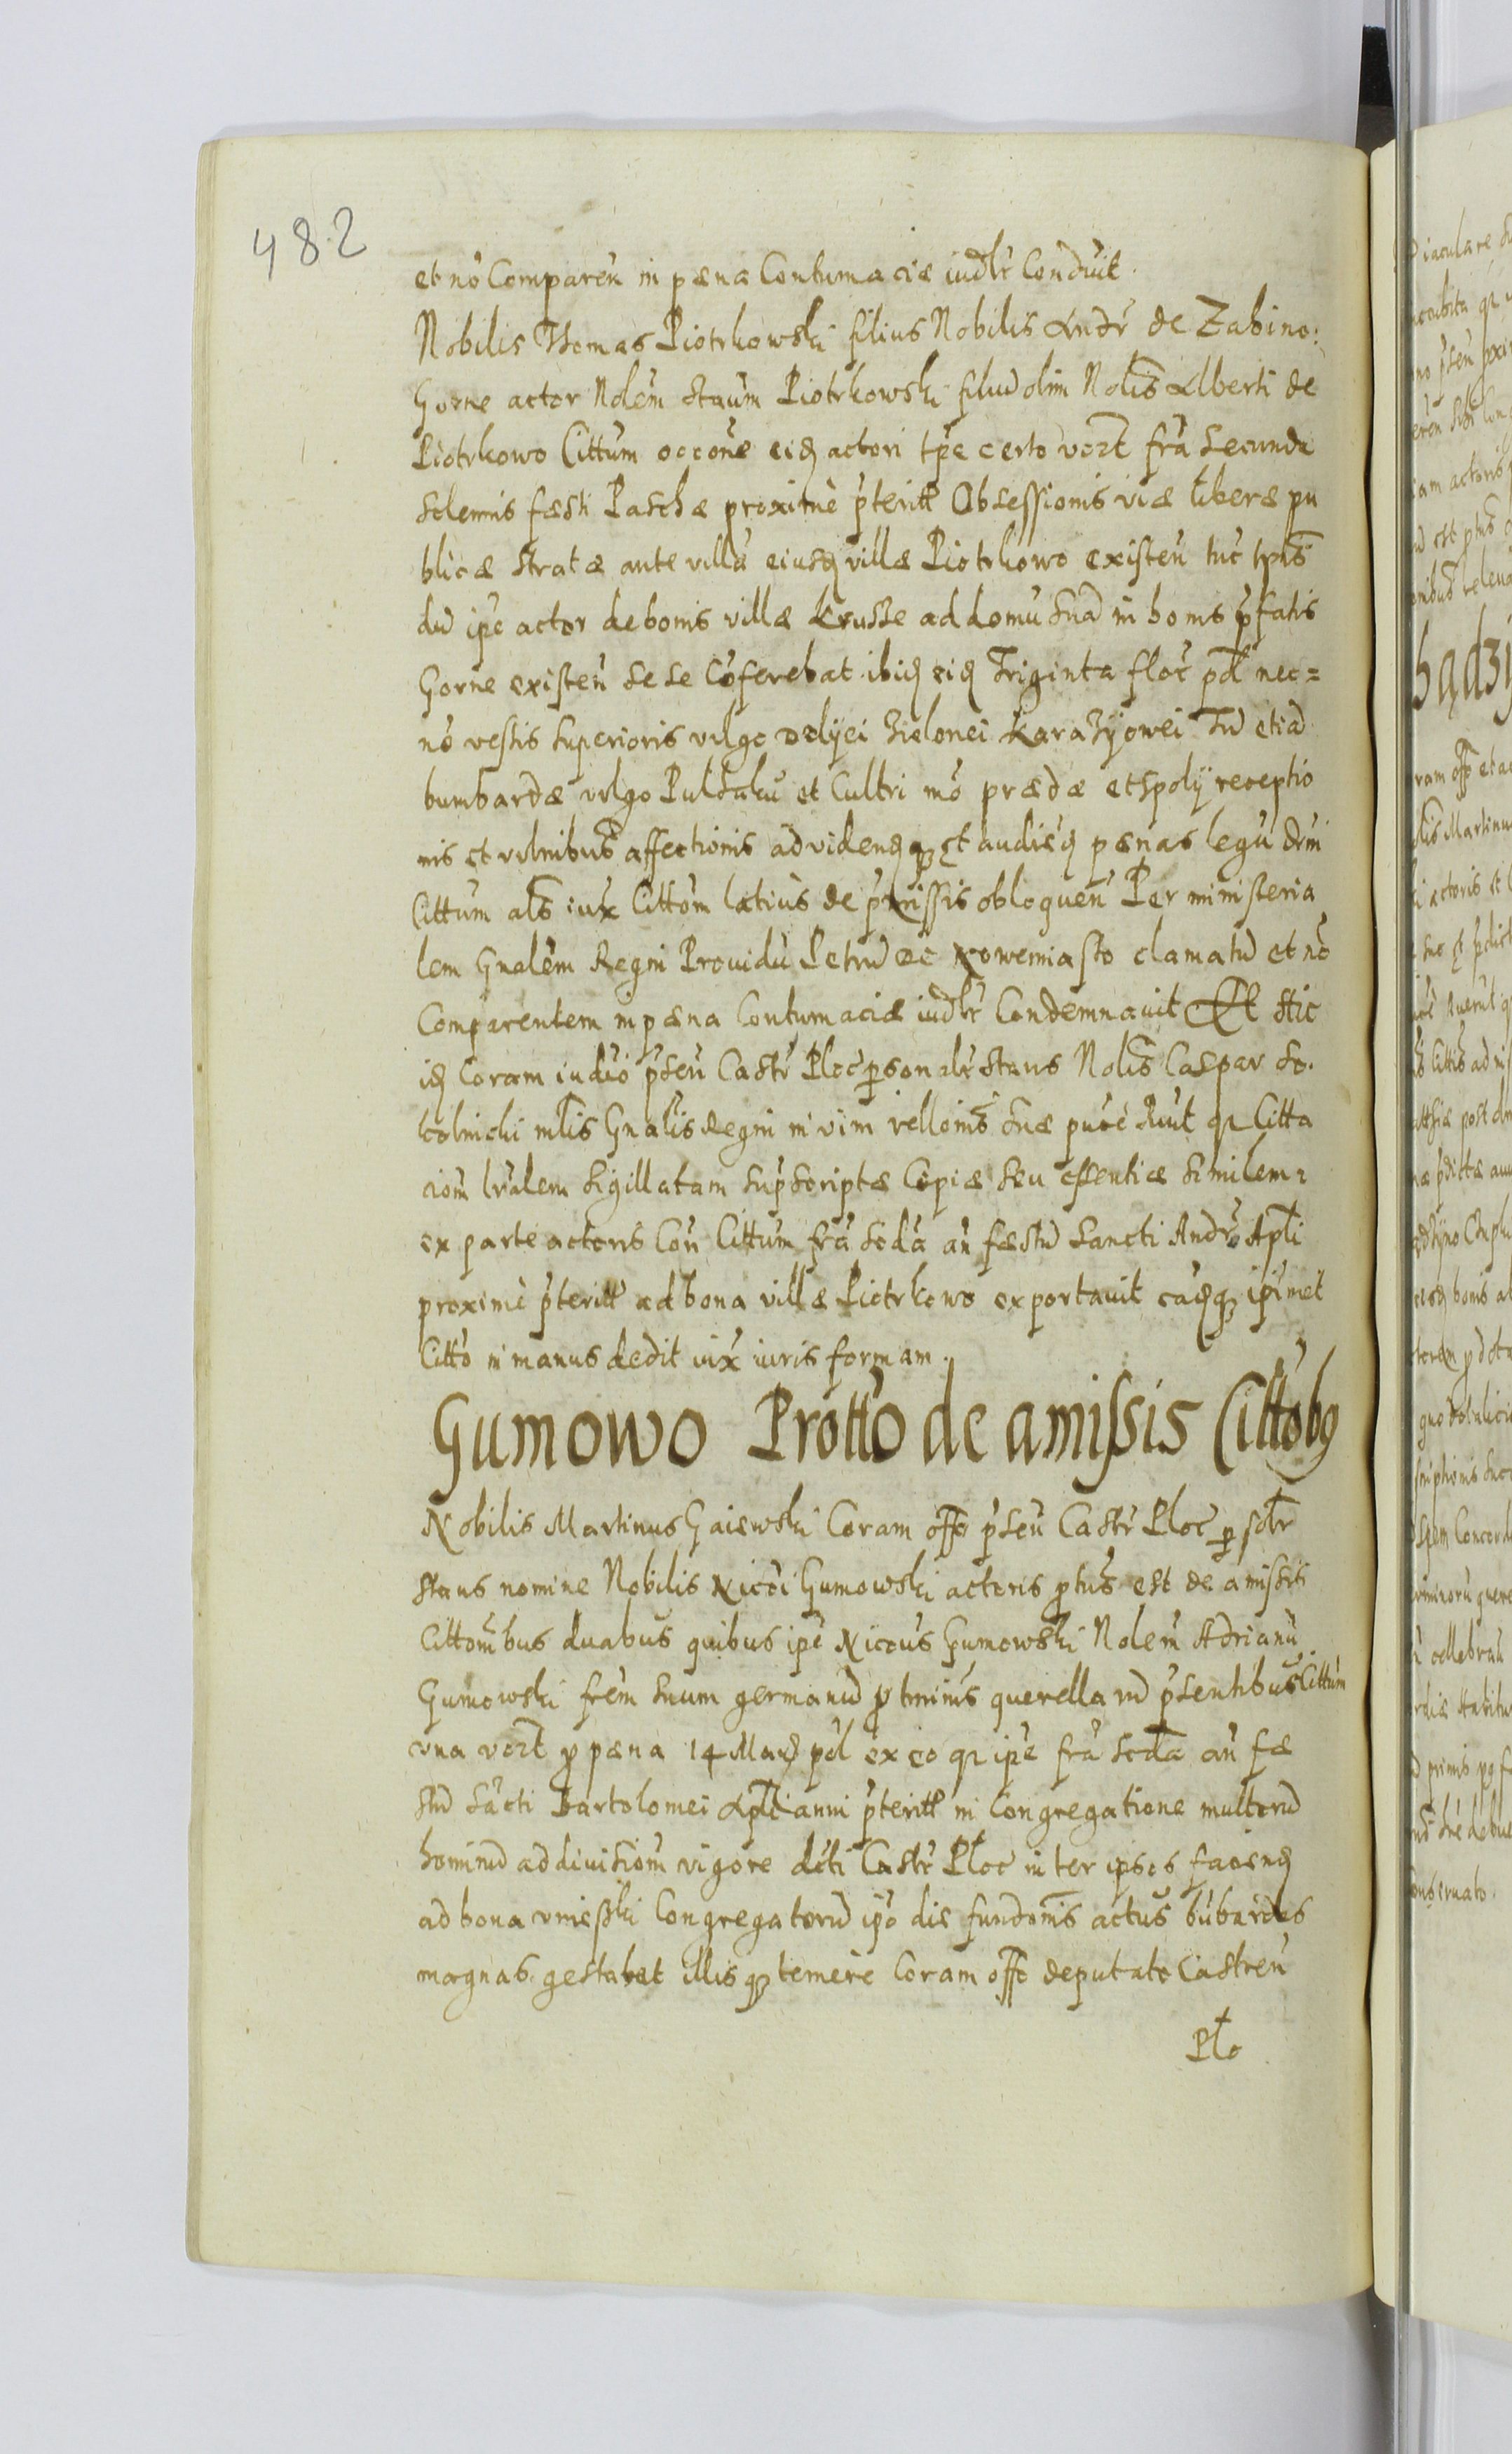 482
et nõ Comparẽn in pæna Contumaciæ iudlr Condũit.
Nobilis Thomas Piotrkowski filius Nobilis Andr̃ de Zabino:
Gorne actor Nolẽm Staũm Piotrkowski filiũ olim Nolis̃ Alberti de
Piotrkowo Cittũm occõne eidẽ actori tp̃e certo vozt̃ frã Secunda
Solemnis fæsti Paschæ proximè p̃teritt Obsessionis viæ liberæ pu
blicæ Stratæ ante villã eiusdẽ villæ Piotrkowo existẽn tũc tp̃ris
dũ ip̃e actor de bonis villæ Krusze ad domũ Suã in bonis p̃fatis
Gorne existẽn se se cõferebat ibidẽ eidẽ Triginta flõc põl nec=
nõ vestis Superioris vulgo delijei zielonei Karazijowei Tũ etiã
bumbardæ vulgo Pulchaku et Cultri mõ prædæ et spolij receptio
nis et vulnibus̃ affectionis ad videndũq et audiẽdũ pænas legũ dũi
Cittũm als̃ iux Cittõm latiùs de p̃missis obloquẽn Per ministeria
lem Gnalẽm Regni Prouidũ Petrũ de Nowemiasto clamatũ et nõ
Comparentem in pæna Contumaciæ iudlr Condemnauit Et Hic
idẽ Coram iudiõ p̃sẽn Castr̃ Plõc personalr̃ stans Nolis̃ Caspar So.
kolnicki mlis Gnalis Regni in vim rellonis̃ Suæ pucè Auit q2 Citta
ciõm lrãlem Sigillatam Sup̃scriptæ Copiæ Seu essentiæ Similem
ex parte actoris Cõn Cittũm frã Sedã añ fæstũ Sancti Andr̃ Apli
proximè p̃teritt ad bona villæ Piotrkowo exportauit eãdẽq ip̃imet
Cittõ in manus dedit iux iuris formam.
Gumowo Prõtto de amissis Cittõbq
Nobilis Martinus Gaiewski Coram offõ p̃sẽn Castr̃ Plõc p solr̃
stans nomine Nobilis Nicõi Gumowski actoris ptus̃ est de amissis
Cittombus duabus quibus ip̃e Nicõus Gumowski Nolẽm Adrianũ
Gumowski frẽm Suum germanũ p tminis̃ querellarũ p̃sentibus Cittũm
vna vozt̃ p pæna 14 Mardẽ põl ex eo q2 ip̃e frã Sedã añ fæ
stũ Sãcti Bartolomei Apli anni p̃teritt in Congregatione multorũ
hominũ ad diuisiõm vigore dcti Castr̃ Plõc inter ipsos faciendẽ
ad bona vniesski Congregatorũ ip̃o die fundonis̃ actus bũbardas
magnas gestabat illisq temerè Coram offõ deputato Castrẽn
Plo